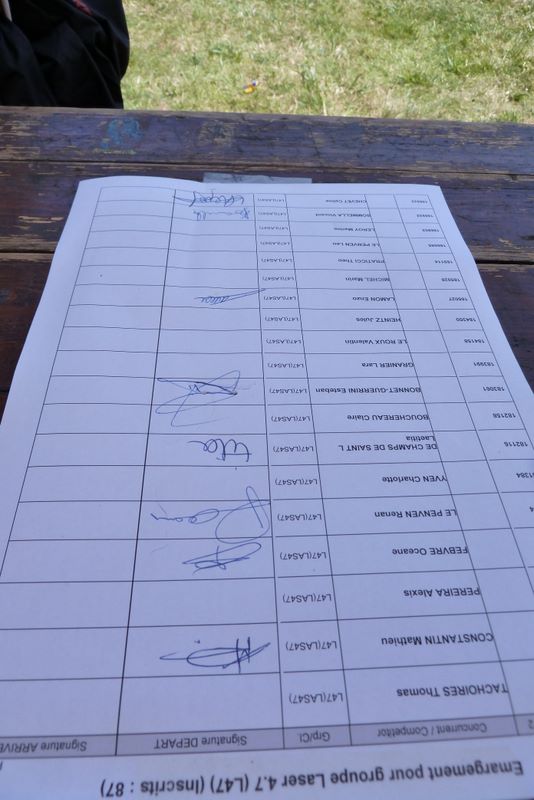 Emargement pour groupe Laser 4.7 (L47) (Inscrits : 87)
Concurrent / Competitor Grp/Cl. Signature DEPART Signature ARRIVE
TACHOIRES Thomas L47(LAS47)
CONSTANTIN Mathieu L47(LAS47)
PEREIRA Alexis L47(LAS47)
FEBVRE Oceane L47(LAS47)
LE PENVEN Renan L47(LAS47)
1384 YVEN Charlotte L47(LAS47)
182116 DE CHAMPS DE SAINT L L47(LAS47)
Laetitia
182156 BOUCHEREAU Claire L47(LAS47)
183061 BONNET-GUERRINI Esteban L47(LAS47)
183991 GRANIER Lara L47(LAS47)
184156 LE ROUX Valentin L47(LAS47)
184300 HEINTZ Jules L47(LAS47)
LAMON Enzo L47(LAS47)
MICHEL Marin L47(LAS47)
FRATICCI Theo L47(LAS47)
LE PENVEN Leo L47(LAS47)
LEROY Martine L47(LAS47)
L47(LAS47)
CHEVET Coline L47(LAS47)